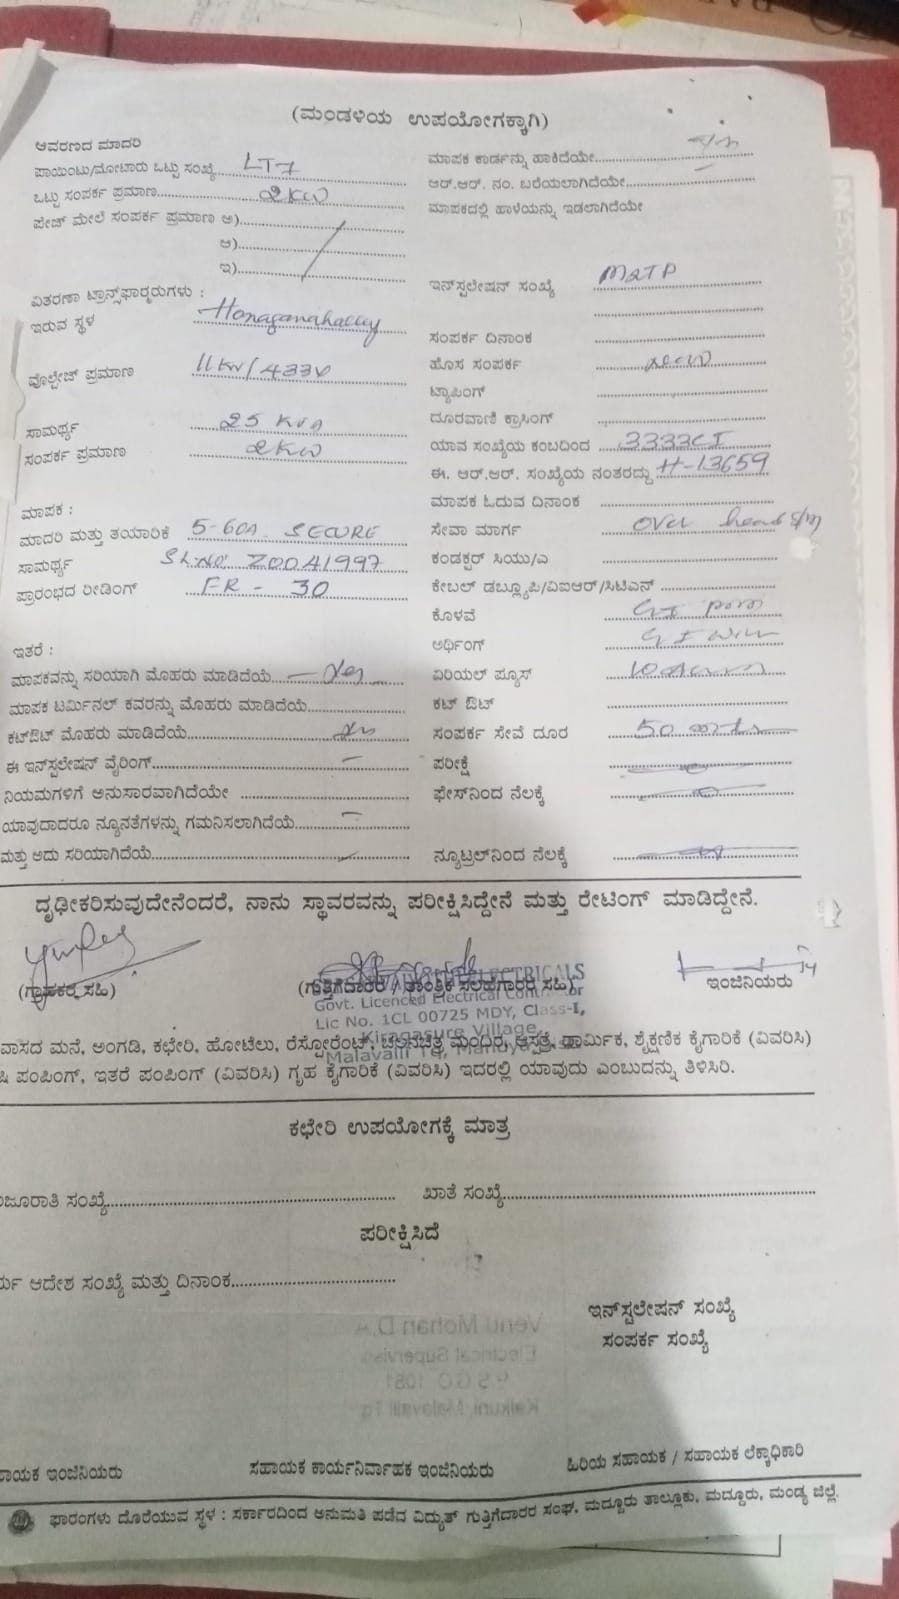 (ಮಂಡಳಿಯ ಉಪಯೋಗಕ್ಕಾಗಿ)
ಆವರಣದ ಮಾದರಿ
ಪಾಯಿಂಟು/ಮೋಟಾರು ಒಟ್ಟು ಸಂಖ್ಯೆ LT7
ಒಟ್ಟು ಸಂಪರ್ಕ ಪ್ರಮಾಣ 2KW
ಪೇಜ್ ಮೇಲೆ ಸಂಪರ್ಕ ಪ್ರಮಾಣ ಅ)
ಆ)
ಇ)
ವಿತರಣಾ ಟ್ರಾನ್ಸ್‌ಫಾರ್‍ಮರುಗಳು :
ಇರುವ ಸ್ಥಳ Honaganahalley
ವೊಲ್ಟೇಜ್ ಪ್ರಮಾಣ 11KV/433V
ಸಾಮರ್ಥ್ಯ 25 KVA
ಸಂಪರ್ಕ ಪ್ರಮಾಣ 2KW
ಮಾಪಕ :
ಮಾದರಿ ಮತ್ತು ತಯಾರಿಕೆ 5-60A. SECURE
ಸಾಮರ್ಥ್ಯ SL.NO. Z0041997
ಪ್ರಾರಂಭದ ರೀಡಿಂಗ್ FR - 30
ಇತರೆ :
ಮಾಪಕವನ್ನು ಸರಿಯಾಗಿ ಮೊಹರು ಮಾಡಿದೆಯೆ Yes
ಮಾಪಕ ಟರ್ಮಿನಲ್ ಕವರನ್ನು ಮೊಹರು ಮಾಡಿದೆಯೆ
ಕಟ್‌ಔಟ್ ಮೊಹರು ಮಾಡಿದೆಯೆ
ಈ ಇನ್ಸ್‌ಟಲೇಷನ್ ವೈರಿಂಗ್
ನಿಯಮಗಳಿಗೆ ಅನುಸಾರವಾಗಿದೆಯೇ
ಯಾವುದಾದರೂ ನ್ಯೂನತೆಗಳನ್ನು ಗಮನಿಸಲಾಗಿದೆಯೆ
ಮತ್ತು ಅದು ಸರಿಯಾಗಿದೆಯೆ
ಮಾಪಕ ಕಾರ್ಡನ್ನು ಹಾಕಿದೆಯೇ
ಆರ್.ಆರ್. ನಂ. ಬರೆಯಲಾಗಿದೆಯೇ
ಮಾಪಕದಲ್ಲಿ ಹಾಳೆಯನ್ನು ಇಡಲಾಗಿದೆಯೇ
ಇನ್ಸ್‌ಟಲೇಷನ್ ಸಂಖ್ಯೆ M2TP
ಸಂಪರ್ಕ ದಿನಾಂಕ
ಹೊಸ ಸಂಪರ್ಕ
ಟ್ಯಾಪಿಂಗ್
ದೂರವಾಣಿ ಕ್ರಾಸಿಂಗ್
ಯಾವ ಸಂಖ್ಯೆಯ ಕಂಬದಿಂದ 3333CI
ಈ. ಆರ್.ಆರ್. ಸಂಖ್ಯೆಯ ನಂತರದ್ದು H-13659
ಮಾಪಕ ಓದುವ ದಿನಾಂಕ
ಸೇವಾ ಮಾರ್ಗ Over head
ಕಂಡಕ್ಟರ್ ಸಿಯು/ಎ
ಕೇಬಲ್ ಡಬ್ಲ್ಯೂಪಿ/ಐಆರ್/ಸಿಟಿಎಸ್
ಕೊಳವೆ
ಅರ್ಥಿಂಗ್ GI wire
ಏರಿಯಲ್ ಪ್ಯೂಸ್
ಕಟ್ ಔಟ್
ಸಂಪರ್ಕ ಸೇವೆ ದೂರ 50 mts
ಪರೀಕ್ಷೆ
ಫೇಸ್‌ನಿಂದ ನೆಲಕ್ಕೆ
ನ್ಯೂಟ್ರಲ್‌ನಿಂದ ನೆಲಕ್ಕೆ
ದೃಢೀಕರಿಸುವುದೇನೆಂದರೆ, ನಾನು ಸ್ಥಾವರವನ್ನು ಪರೀಕ್ಷಿಸಿದ್ದೇನೆ ಮತ್ತು ರೇಟಿಂಗ್ ಮಾಡಿದ್ದೇನೆ.
(ಗ್ರಾಹಕರ ಸಹಿ)
(ಗುತ್ತಿಗೆದಾರರ / ತಾಂತ್ರಿಕ ಸಲಹಗಾರರ ಸಹಿ)
ಇಂಜಿನಿಯರು
ELECTRICALS
Govt. Licenced Electrical Contractor
Lic No. 1CL 00725 MDY, Class-I,
Kiragasure Village,
Malavalli Tq, Mandya
ವಾಸದ ಮನೆ, ಅಂಗಡಿ, ಕಛೇರಿ, ಹೋಟೆಲು, ರೆಸ್ಟೋರೆಂಟ್, ಚಲನಚಿತ್ರ ಮಂದಿರ, ಆಸ್ಪತ್ರೆ, ಧಾರ್ಮಿಕ, ಶೈಕ್ಷಣಿಕ ಕೈಗಾರಿಕೆ (ವಿವರಿಸಿ)
ಪಂಪಿಂಗ್, ಇತರೆ ಪಂಪಿಂಗ್ (ವಿವರಿಸಿ) ಗೃಹ ಕೈಗಾರಿಕೆ (ವಿವರಿಸಿ) ಇದರಲ್ಲಿ ಯಾವುದು ಎಂಬುದನ್ನು ತಿಳಿಸಿರಿ.
ಕಛೇರಿ ಉಪಯೋಗಕ್ಕೆ ಮಾತ್ರ
ಜೂರಾತಿ ಸಂಖ್ಯೆ
ಖಾತೆ ಸಂಖ್ಯೆ
ಪರೀಕ್ಷಿಸಿದೆ
ಆದೇಶ ಸಂಖ್ಯೆ ಮತ್ತು ದಿನಾಂಕ
ಇನ್ಸ್‌ಟಲೇಷನ್ ಸಂಖ್ಯೆ
ಸಂಪರ್ಕ ಸಂಖ್ಯೆ
ಾಯಕ ಇಂಜಿನಿಯರು
ಸಹಾಯಕ ಕಾರ್ಯನಿರ್ವಾಹಕ ಇಂಜಿನಿಯರು
ಹಿರಿಯ ಸಹಾಯಕ / ಸಹಾಯಕ ಲೆಕ್ಕಾಧಿಕಾರಿ
ಫಾರಂಗಳು ದೊರೆಯುವ ಸ್ಥಳ : ಸರ್ಕಾರದಿಂದ ಅನುಮತಿ ಪಡೆದ ವಿದ್ಯುತ್ ಗುತ್ತಿಗೆದಾರರ ಸಂಘ, ಮದ್ದೂರು ತಾಲ್ಲೂಕು, ಮದ್ದೂರು, ಮಂಡ್ಯ ಜಿಲ್ಲೆ.